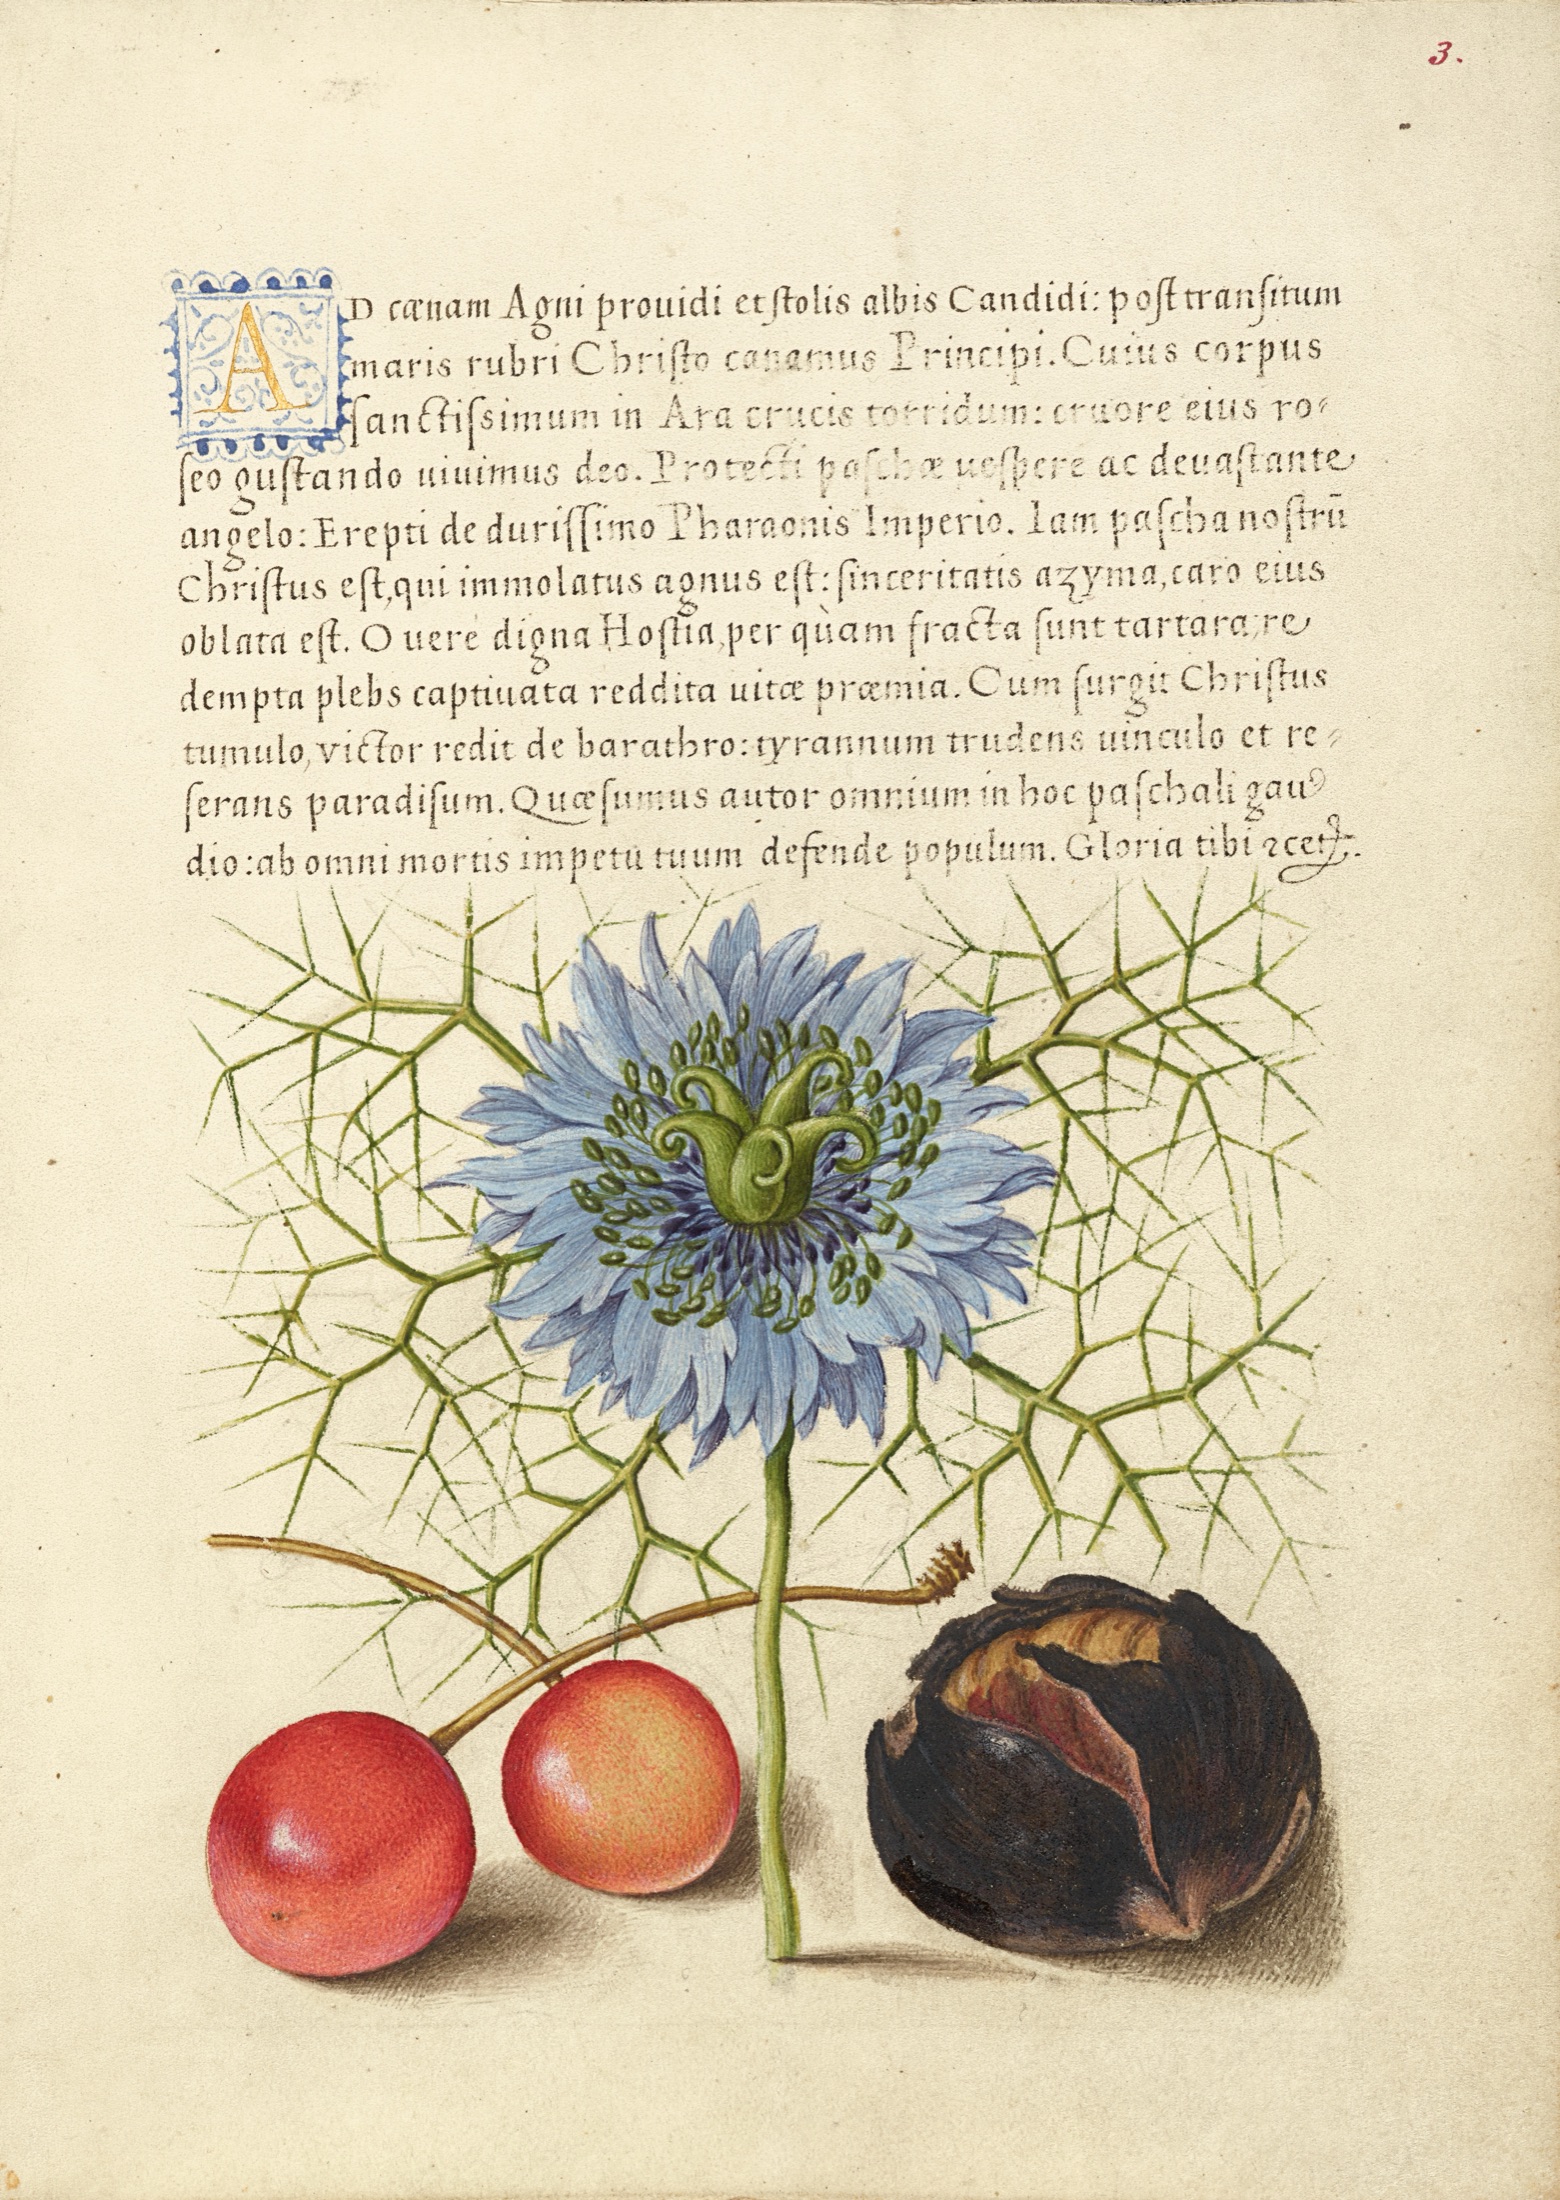 3.
AD cænam Agni prouidi et ſtolis albis Candidi: poſt tranſitum
maris rubri Chriſto canamus Principi. Cuius corpus
ſanctiſsimum in Ara crucis torridum: cruore eius ro⸗
ſeo guſtando uiuimus deo. Protecti paſchæ ueſpere ac deuaſtante
angelo: Erepti de duriſſimo Pharaonis Imperio. Iam paſcha noſtrū
Chriſtus eſt, qui immolatus agnus eſt: ſinceritatis azyma, caro eius
oblata eſt. O uere digna Hoſtia, per quàm fracta ſunt tartara, re
dempta plebs captiuata reddita uitæ præmia. Cum ſurgit Chriſtus
tumulo, victor redit de barathro: tyrannum trudens uinculo et re⸗
ſerans paradiſum. Quæſumus autor omnium in hoc paſchali gau
dio: ab omni mortis impetu tuum defende populum. Gloria tibi ⁊cet.